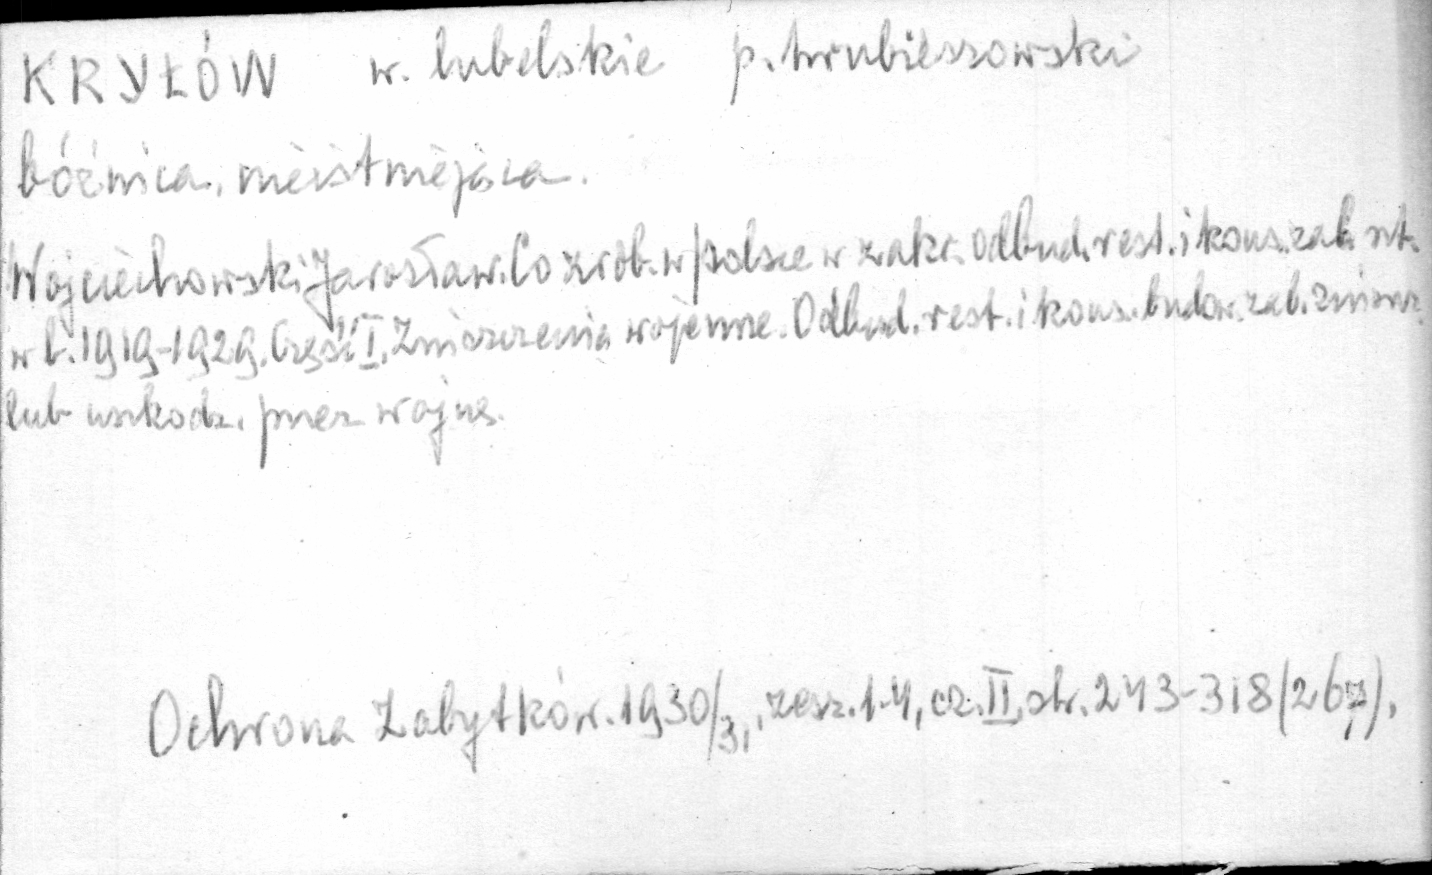 KRYŁÓW w. lubelskie p. hrubieszowski
bóżnica, nieistniejąca.
Wojciechowski Jarosław. Co zrob. w Polsce w zakr. odbud. rest. i kons. zab. szt.
w l. 1919-1929. Część I. Zniszczenia wojenne. Odbud. rest. i kons. budow. zab. zniszcz.
lub uszkodz. przez wojnę.
Ochrona Zabytków. 1930/31, zesz. 1-4, cz. II, str. 243-318 (267).